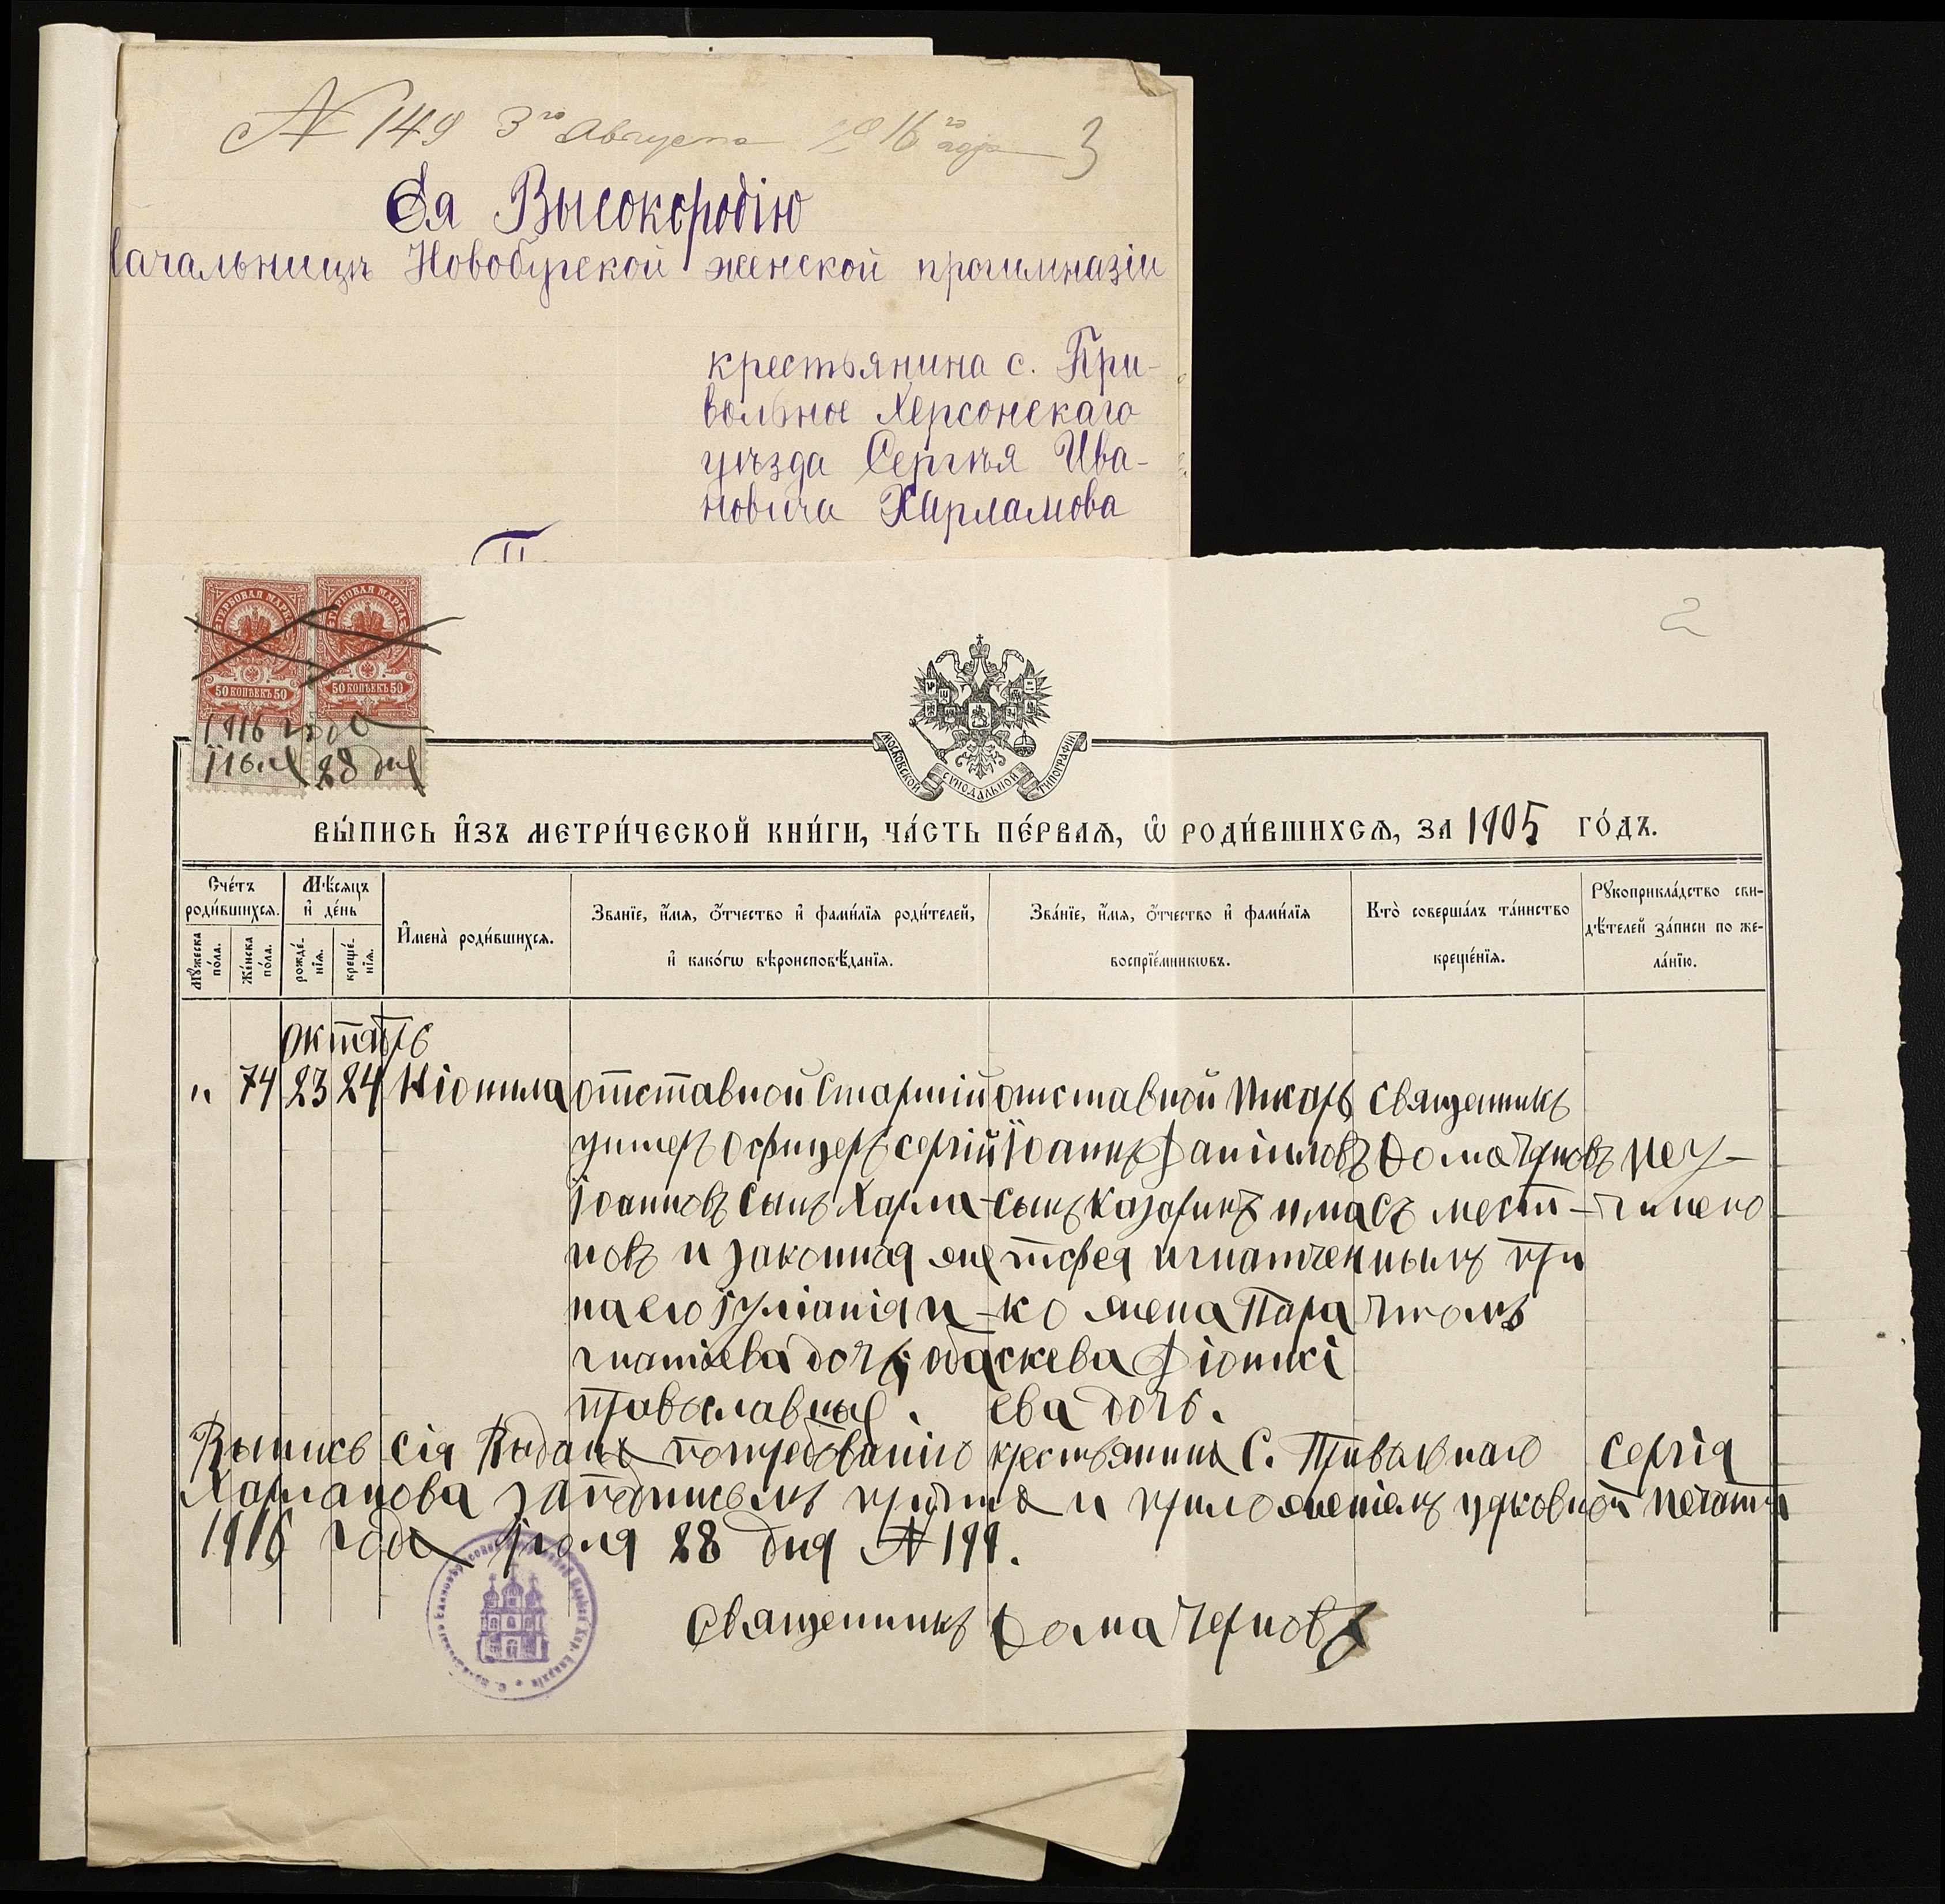 № 149 3го Августа 1916го года 3
Ея Высокородію
Начальницѣ Новобугской женской прогимназіи
крестьянина с. При-
вольное Херсонскаго
уѣзда Сергѣя Ива-
новича Харламова
2
ГЕРБОВАЯ МАРКА ГЕРБОВАЯ МАРКА
50 КОПѢЕКЪ 50 50 КОПѢЕКЪ 50
1916 года
28 дня
МОСКОВСКОЙ СѴНОДАЛЬНОЙ ТИПОГРАФІИ
ВЫ́ПИСЬ И҆ЗЪ МЕТРИ́ЧЕСКОЙ КНИ́ГИ, ЧА́СТЬ ПЕ́РВАѦ, Ѽ РОДИ́ВШИХСѦ, ЗА 1905 ГО́ДЪ.
Сче́тъ роди́вшихсѧ.
Мꙋ́жеска по́ла.
Же́нска по́ла.
Мѣ́сѧцъ и҆ де́нь
рожде́-нїѧ.
креще́-нїѧ.
И҆мена̀ роди́вшихсѧ.
Зва́нїе, и҆́мѧ, ѻ҆́тчество и҆ фами́лїѧ роди́телей,
и҆ како́гѡ вѣроисповѣ́данїѧ.
Зва́нїе, и҆́мѧ, ѻ҆́тчество и҆ фами́лїѧ
воспрїе́мникѡвъ.
Кто̀ соверша́лъ та́инство
креще́нїѧ.
Рꙋкоприкла́дство сви-
дѣ́телей за́писи по же-
ла́нїю.
октябрь
" 74 23 24 Неонила
отставной Старшій
унтеръ офицеръ Сергій
Іоанновъ сынъ Харла-
новъ и законная же
на его Іуліанія и-
гнатіева дочь, оба
православные.
отставной писарь
Іоаннъ Даніиловъ
сынъ Казаринъ и ма
трофея игнатчен
ко жена Пара
скева
ева дочь.
Священникъ
Ѳома Черновъ
съ мест-
нымъ при
чтомъ
неу-
чинено
Выпись сія Выдана по требованію крестьянина С. Привольнаго Сергія
Харланова за подписомъ причта и приложеніемъ церковной печати
1916 года іюля 28 дня № 199.
Священникъ Ѳома Черновъ